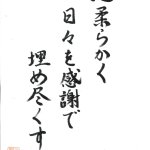 柔らかく
日々を感謝で
埋め尽くす